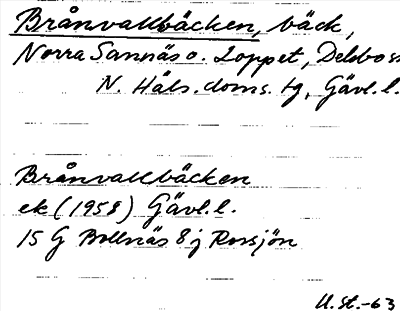 Brånvallbäcken, bäck,
Norra Sannäs o. Loppet, Delsbo sn
N. Häls. doms. tg, Gävl. l.
Brånvallbäcken
ek (1958) Gävl. l.
15 G Bollnäs 8 j Rossjön
U. St.-63